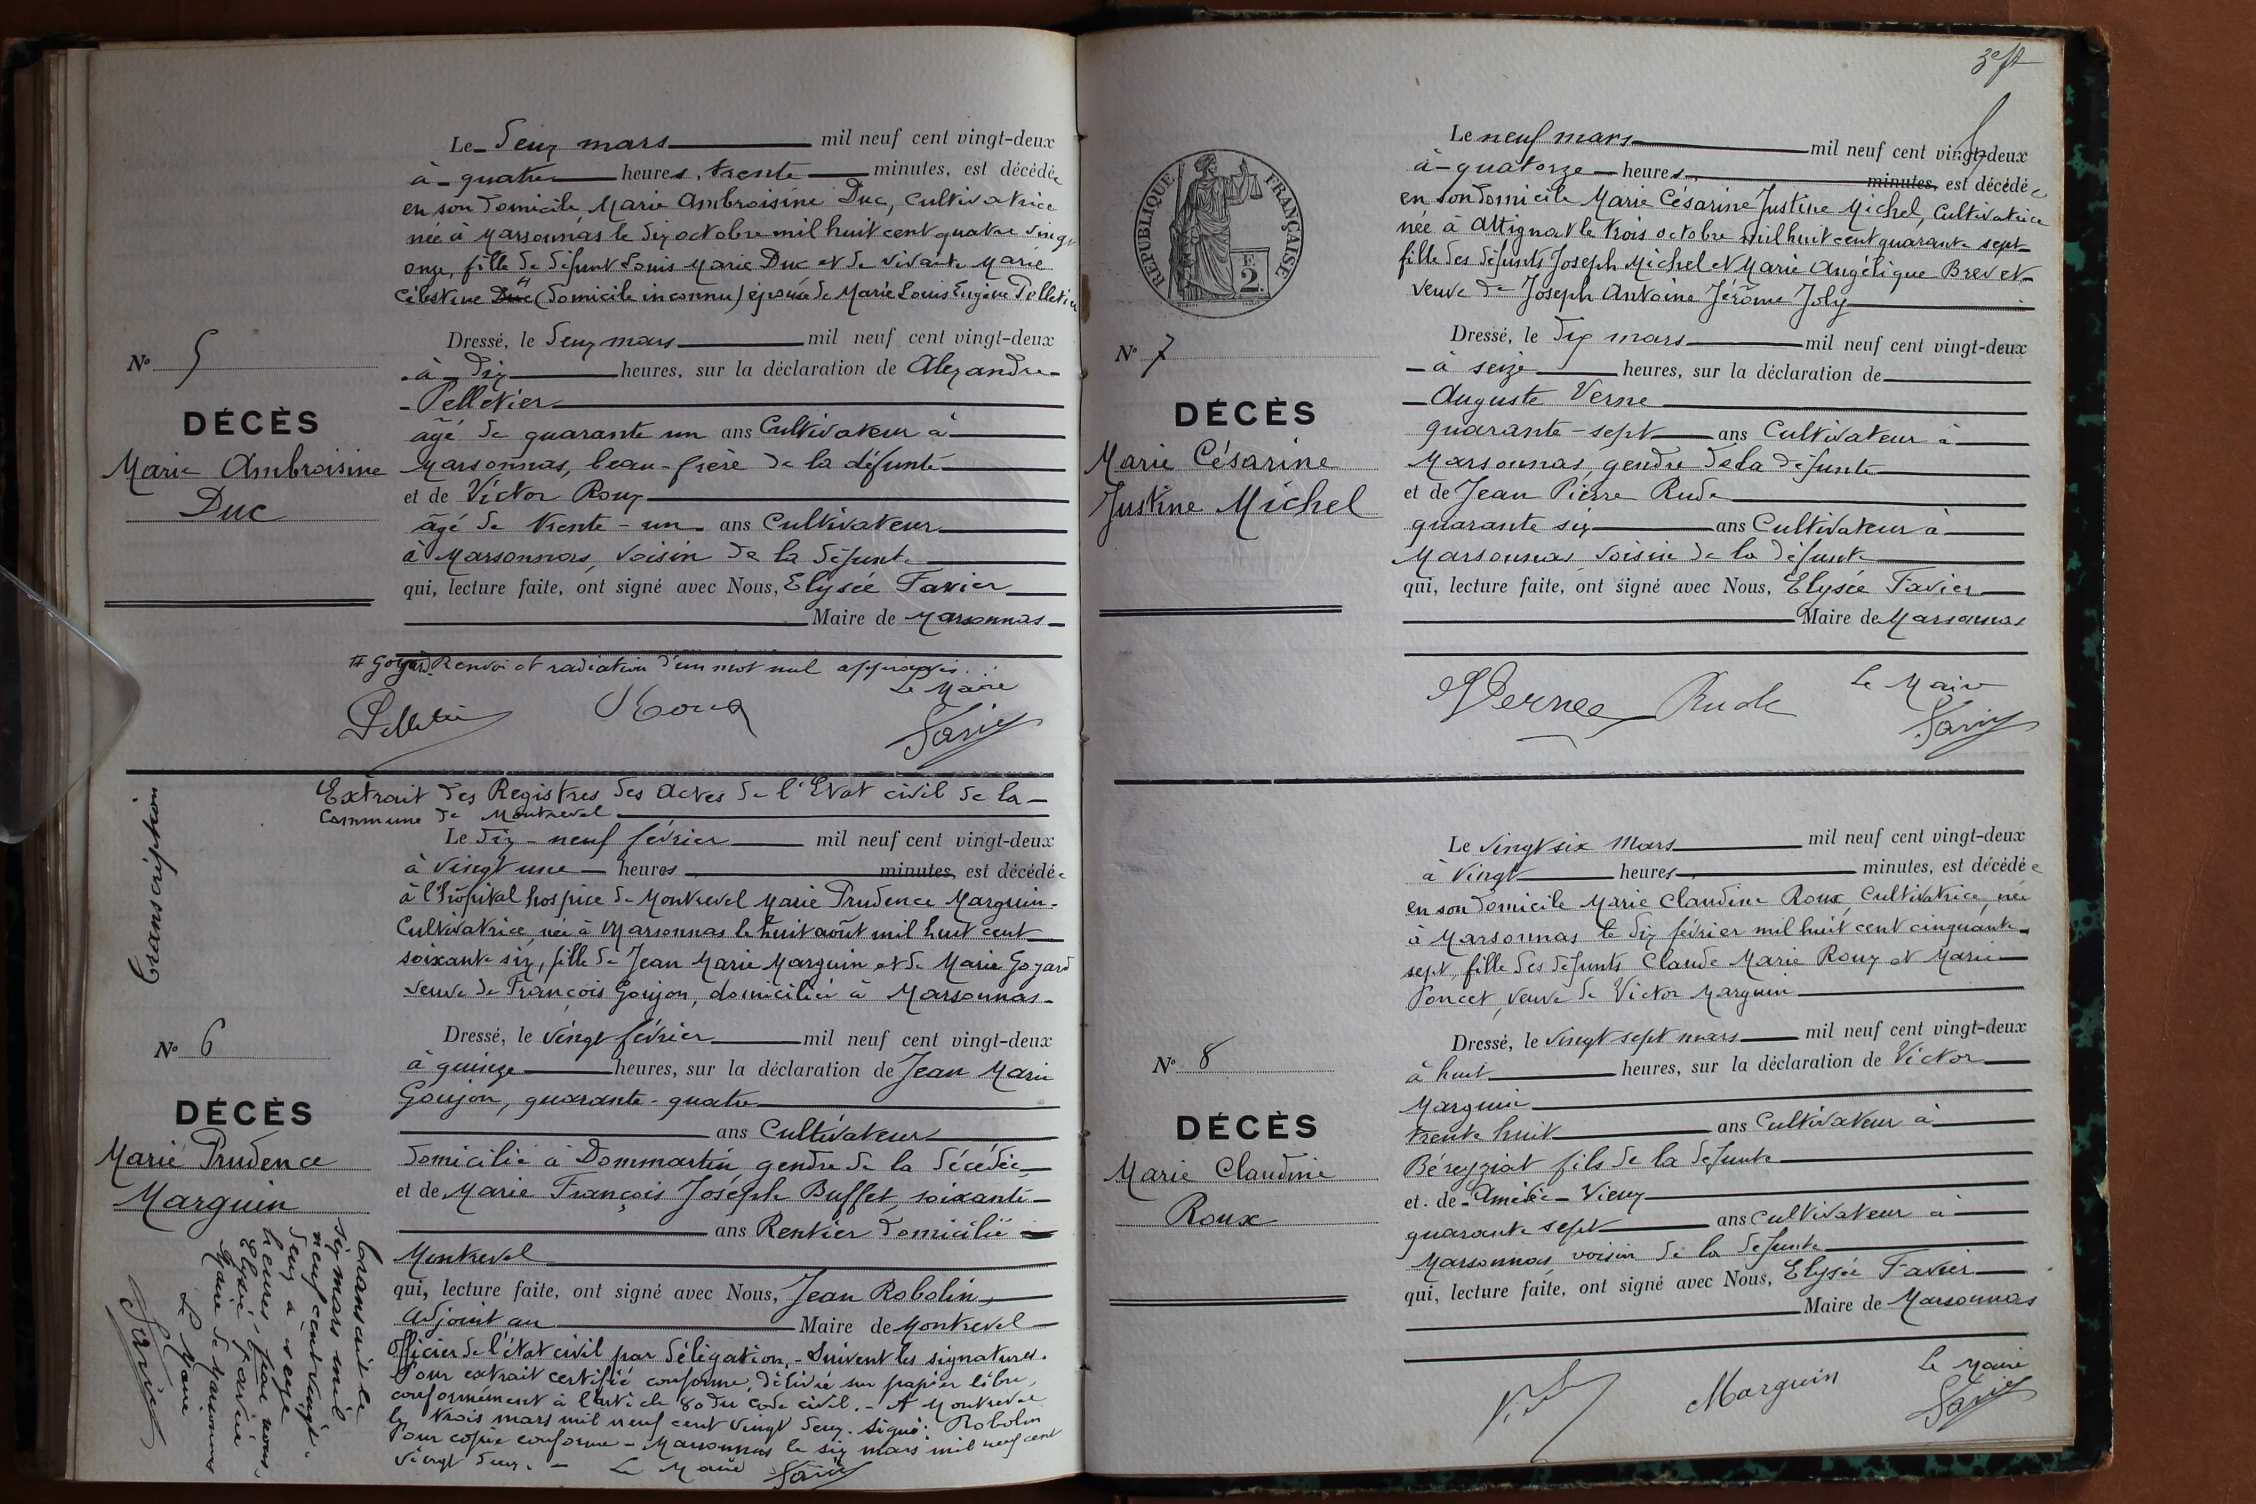 Le deux mars mil neuf cent vingt-deux
à quatre heures, trente minutes, est décédée
en son domicile, Marie Ambroisine Duc, Cultivatrice
née à Marsonnas le dix octobre mil huit cent quatre vingt
onze, fille de défunt Louis Marie Duc et de vivante Marie
Célestine Duc # (domicile inconnu) épouse de Marie Louis Eugène Pelletier
Dressé, le deux mars mil neuf cent vingt-deux
à dix heures, sur la déclaration de Alexandre
Pelletier
âgé de quarante un ans Cultivateur à
Marsonnas, beau-frère de la défunte
et de Victor Roux
âgé de trente-un ans Cultivateur
à Marsonnas, voisin de la défunte
qui, lecture faite, ont signé avec Nous, Elysée Favier
Maire de Marsonnas
# Goyard. Renvoi et radiation d'un mot nul approuvés.
Le Maire
Pelletier Roux Favier
No 5
DÉCÈS
Marie Ambroisine
Duc
Transcription
Extrait des Registres des Actes de l'Etat civil de la
Commune de Montrevel
Le dix-neuf février mil neuf cent vingt-deux
à vingt une heures minutes, est décédée
à l'hôpital hospice de Montrevel Marie Prudence Marguin
Cultivatrice, née à Marsonnas le huit août mil huit cent
soixante six, fille de Jean Marie Marguin et de Marie Goyard
veuve de François Goujon, domiciliée à Marsonnas
Dressé, le vingt février mil neuf cent vingt-deux
à quinze heures, sur la déclaration de Jean Marie
Goujon, quarante-quatre
ans Cultivateur
domicilié à Dommartin gendre de la décédée
et de Marie François Joseph Buffet, soixante
ans Rentier domicilié à
Montrevel
qui, lecture faite, ont signé avec Nous, Jean Robolin,
Adjoint au Maire de Montrevel
Officier de l'état civil par délégation. - Suivent les signatures.
Pour extrait certifié conforme, délivré sur papier libre,
conformément à l'article 80 du code civil. - A Montrevel
le trois mars mil neuf cent vingt deux. Signé: Robolin
Pour copie conforme - Marsonnas le six mars mil neuf cent
vingt deux. - Le Maire Favier
No 6
DÉCÈS
Marie Prudence
Marguin
Transcrit le
six mars mil
neuf cent vingt-
deux à seize
heures, par nous,
Elysée Favier
Maire de Marsonnas
Le Maire
Favier
3e ft
RÉPUBLIQUE FRANÇAISE
F.
2.
Le neuf mars mil neuf cent vingt-deux
à quatorze heures minutes, est décédée
en son domicile Marie Césarine Justine Michel, Cultivatrice
née à Attignat le trois octobre mil huit cent quarante sept
fille des défunts Joseph Michel et Marie Angélique Brevet
veuve de Joseph Antoine Jérôme Joly
Dressé, le dix mars mil neuf cent vingt-deux
à seize heures, sur la déclaration de
Auguste Verne
quarante-sept ans Cultivateur à
Marsonnas, gendre de la défunte
et de Jean Pierre Rude
quarante six ans Cultivateur à
Marsonnas voisin de la défunte
qui, lecture faite, ont signé avec Nous, Elysée Favier
Maire de Marsonnas
Le Maire
Verne Rude Favier
No 7
DÉCÈS
Marie Césarine
Justine Michel
Le vingt six Mars mil neuf cent vingt-deux
à vingt heures minutes, est décédée
en son domicile Marie Claudine Roux, Cultivatrice, née
à Marsonnas le dix février mil huit cent cinquante
sept, fille des défunts Claude Marie Roux et Marie
Poncet, veuve de Victor Marguin
Dressé, le vingt sept mars mil neuf cent vingt-deux
à huit heures, sur la déclaration de Victor
Marguin
trente huit ans Cultivateur à
Béreyziat fils de la défunte
et de Amédée Vieux
quarante sept ans cultivateur à
Marsonnas voisin de la défunte
qui, lecture faite, ont signé avec Nous, Elysée Favier
Maire de Marsonnas
Le Maire
Marguin Favier
No 8
DÉCÈS
Marie Claudine
Roux